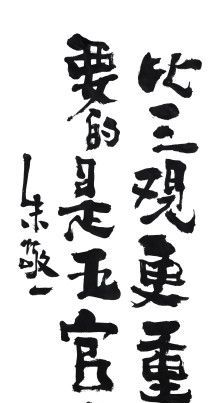 比三观更重
要的是五官
朱敬一